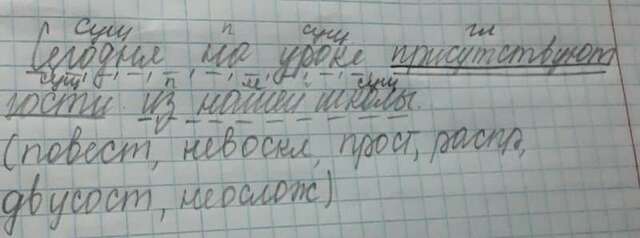 сущ п сущ гл
Сегодня на уроке присутствуют
сущ п м сущ
гости из нашей школы.
(повест, невоскл, прост, распр,
двусост, неослож)